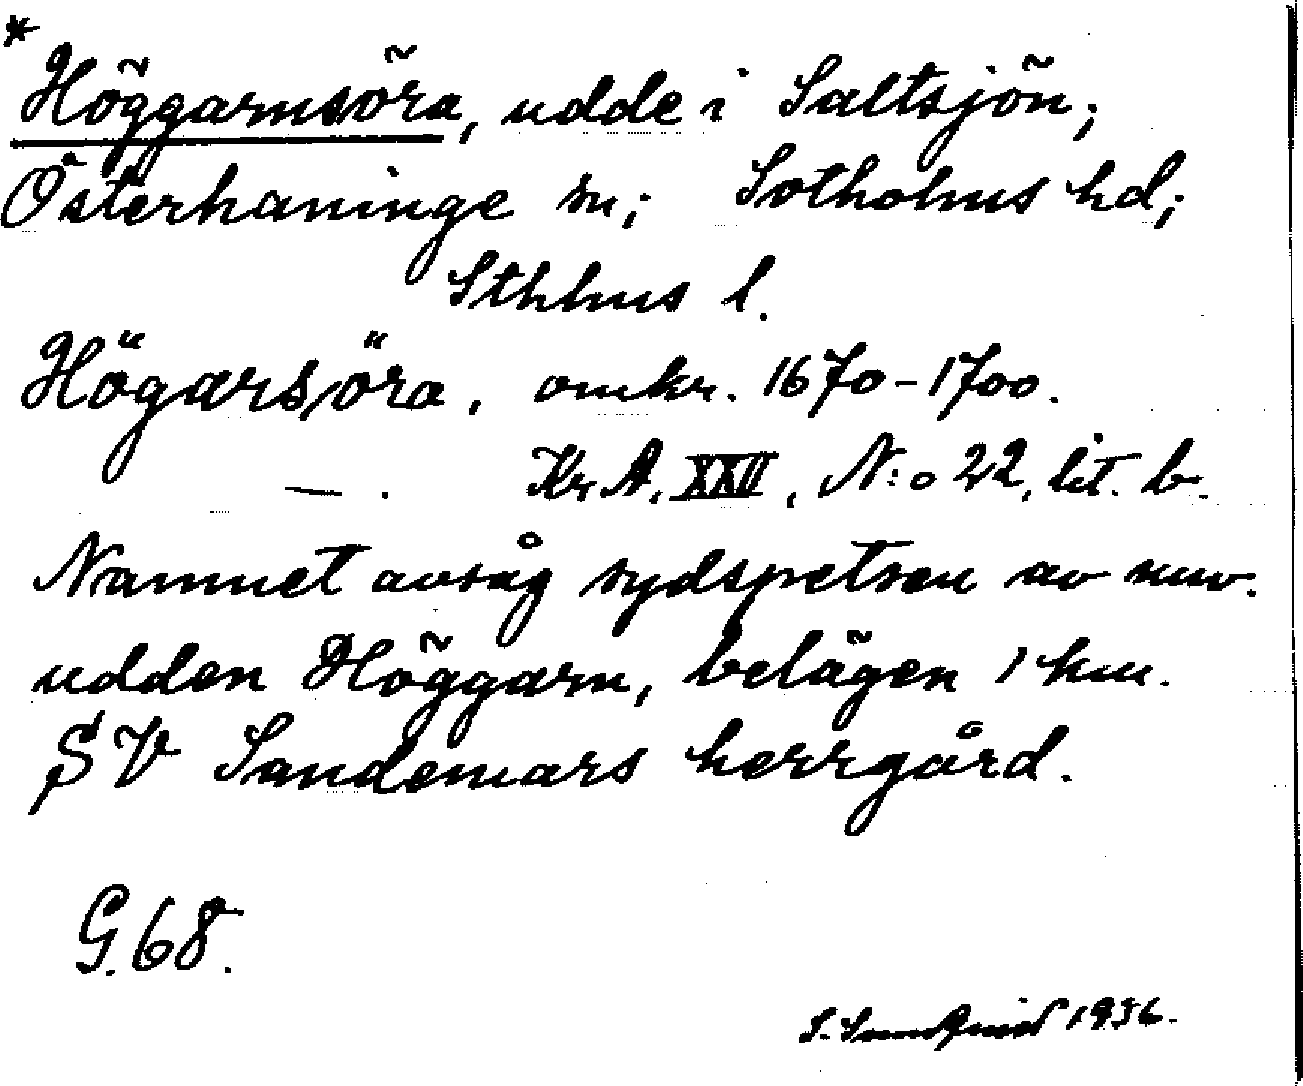 *
Höggarnsöra, udde i Saltsjön;
Österhaninge sn; Sotholms hd;
Sthlms l.
Högarsöra, omkr. 1670-1700.
— . Kr A. XXII, N:o 22, lit. b.
Namnet avsåg sydspetsen av nuv.
udden Höggarn, belägen 1 km.
SV Sandemars herrgård.
G. 68.
S. 1936.